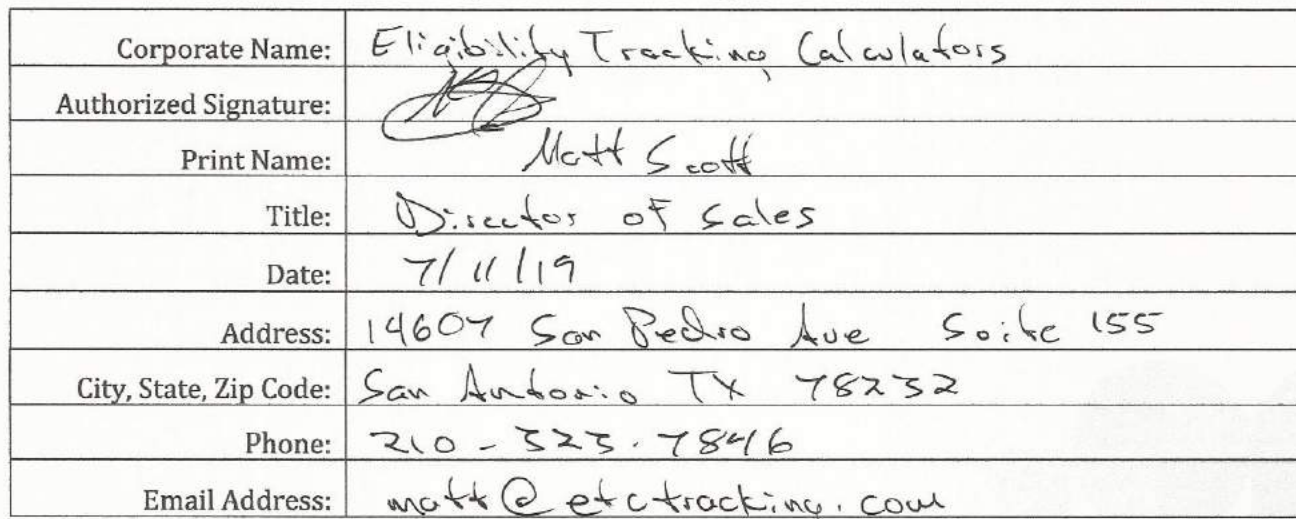 Corporate Name: Eligibility Tracking Calculators
Authorized Signature:
Print Name: Matt Scott
Title: Director of Sales
Date: 7/11/19
Address: 14607 San Pedro Ave Suite 155
City, State, Zip Code: San Antonio TX 78232
Phone: 210-323-7846
Email Address: matt@etctracking.com